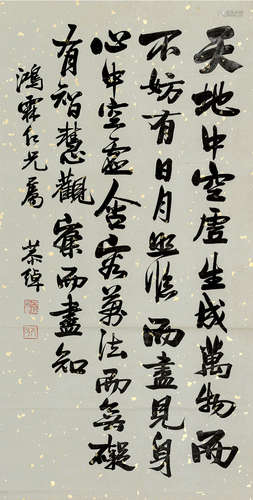 天地中空虛生成萬物而
不妨有日月照臨而盡見身
心中空虛含容萬法而無礙
有智慧觀察而盡知
鴻霖仁兄屬
恭綽